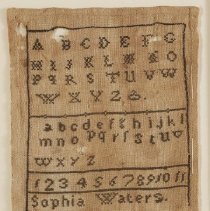 A B C D E F G
H I J K L M N O
P Q R S T U V W
W X Y Z &.
a b c d e f g h i j k l
m n o p q r s t u v
w x y z
1 2 3 4 5 6 7 8 9 10 11
Sophia Waters.